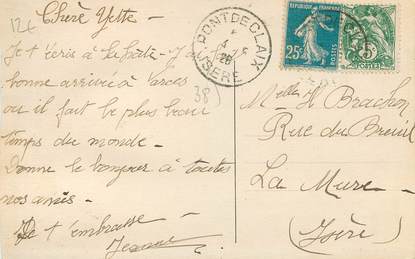 12€
Chère Yette
Je t'écris à la hâte - J'ai
bonne arrivée à Varces
ou il fait le plus beau
temps du monde -
Donne le bonjour à toutes
nos amies.
Je t'embrasse
Jeanne
PONT DE CLAIX
ISERE
38)
REPUBLIQUE FRANÇAISE
25c
POSTES
5
Melle H Brachon
Rue du Breuil
La Mure
(Isère)